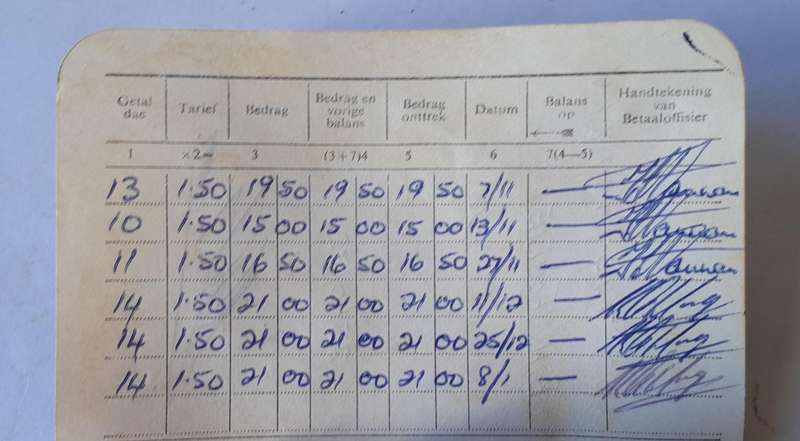 Getal dae Tarief Bedrag Bedrag en vorige balans Bedrag onttrek Datum Balans op Handtekening van Betaaloffisier
1 ×2= 3 (3+7)4 5 6 7(4—5)
13 1·50 19 50 19 50 19 50 7/11 —
10 1·50 15 00 15 00 15 00 13/11 —
11 1·50 16 50 16 50 16 50 27/11 —
14 1·50 21 00 21 00 21 00 11/12 —
14 1·50 21 00 21 00 21 00 25/12 —
14 1·50 21 00 21 00 21 00 8/1 —